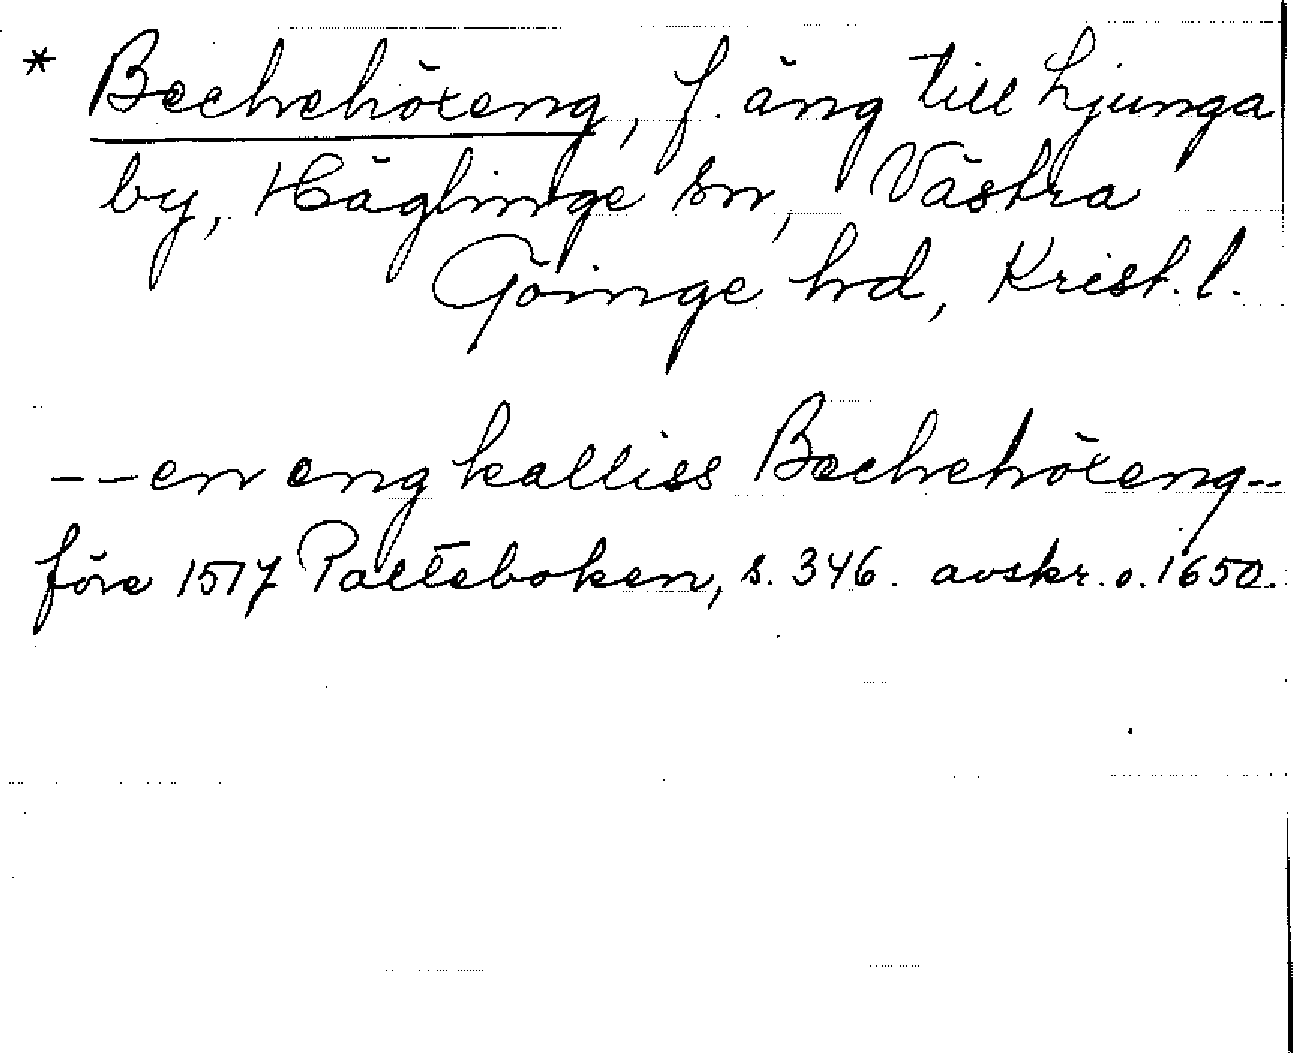 * Bechehöxeng, f. äng till Ljunga
by, Häglinge sn, Västra
Göinge hd, Krist. l.
-- en eng kalliss Bechehöxeng --
före 1517 Palteboken, s. 346. avskr. o. 1650.